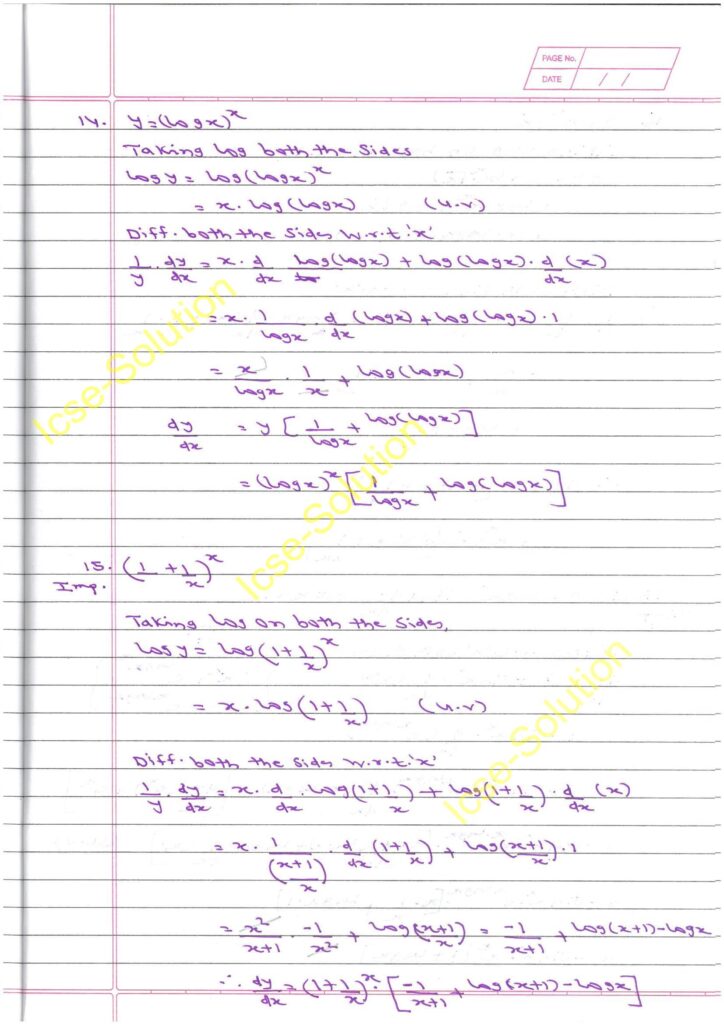 PAGE No.
DATE / /
14. y = (log x)^x
Taking log both the sides
log y = log (log x)^x
= x · log (log x) (u.v)
Diff. both the sides w.r.t 'x'
1/y · dy/dx = x · d/dx log (log x) + log (log x) · d/dx (x)
= x · 1/log x · d/dx (log x) + log (log x) · 1
= x/log x · 1/x + log (log x)
dy/dx = y [1/log x + log (log x)]
= (log x)^x [1/log x + log (log x)]
15. (1 + 1/x)^x
Imp.
Taking log on both the sides,
log y = log (1 + 1/x)^x
= x · log (1 + 1/x) (u.v)
Diff. both the sides w.r.t 'x'
1/y · dy/dx = x · d/dx · log (1 + 1/x) + log (1 + 1/x) · d/dx (x)
= x · 1/((x+1)/x) · d/dx (1 + 1/x) + log ((x+1)/x) · 1
= x²/(x+1) · -1/x² + log ((x+1)/x) = -1/(x+1) + log (x+1) - log x
∴ dy/dx = (1 + 1/x)^x · [-1/(x+1) + log (x+1) - log x]
Icse-Solution
Icse-Solution
Icse-Solution